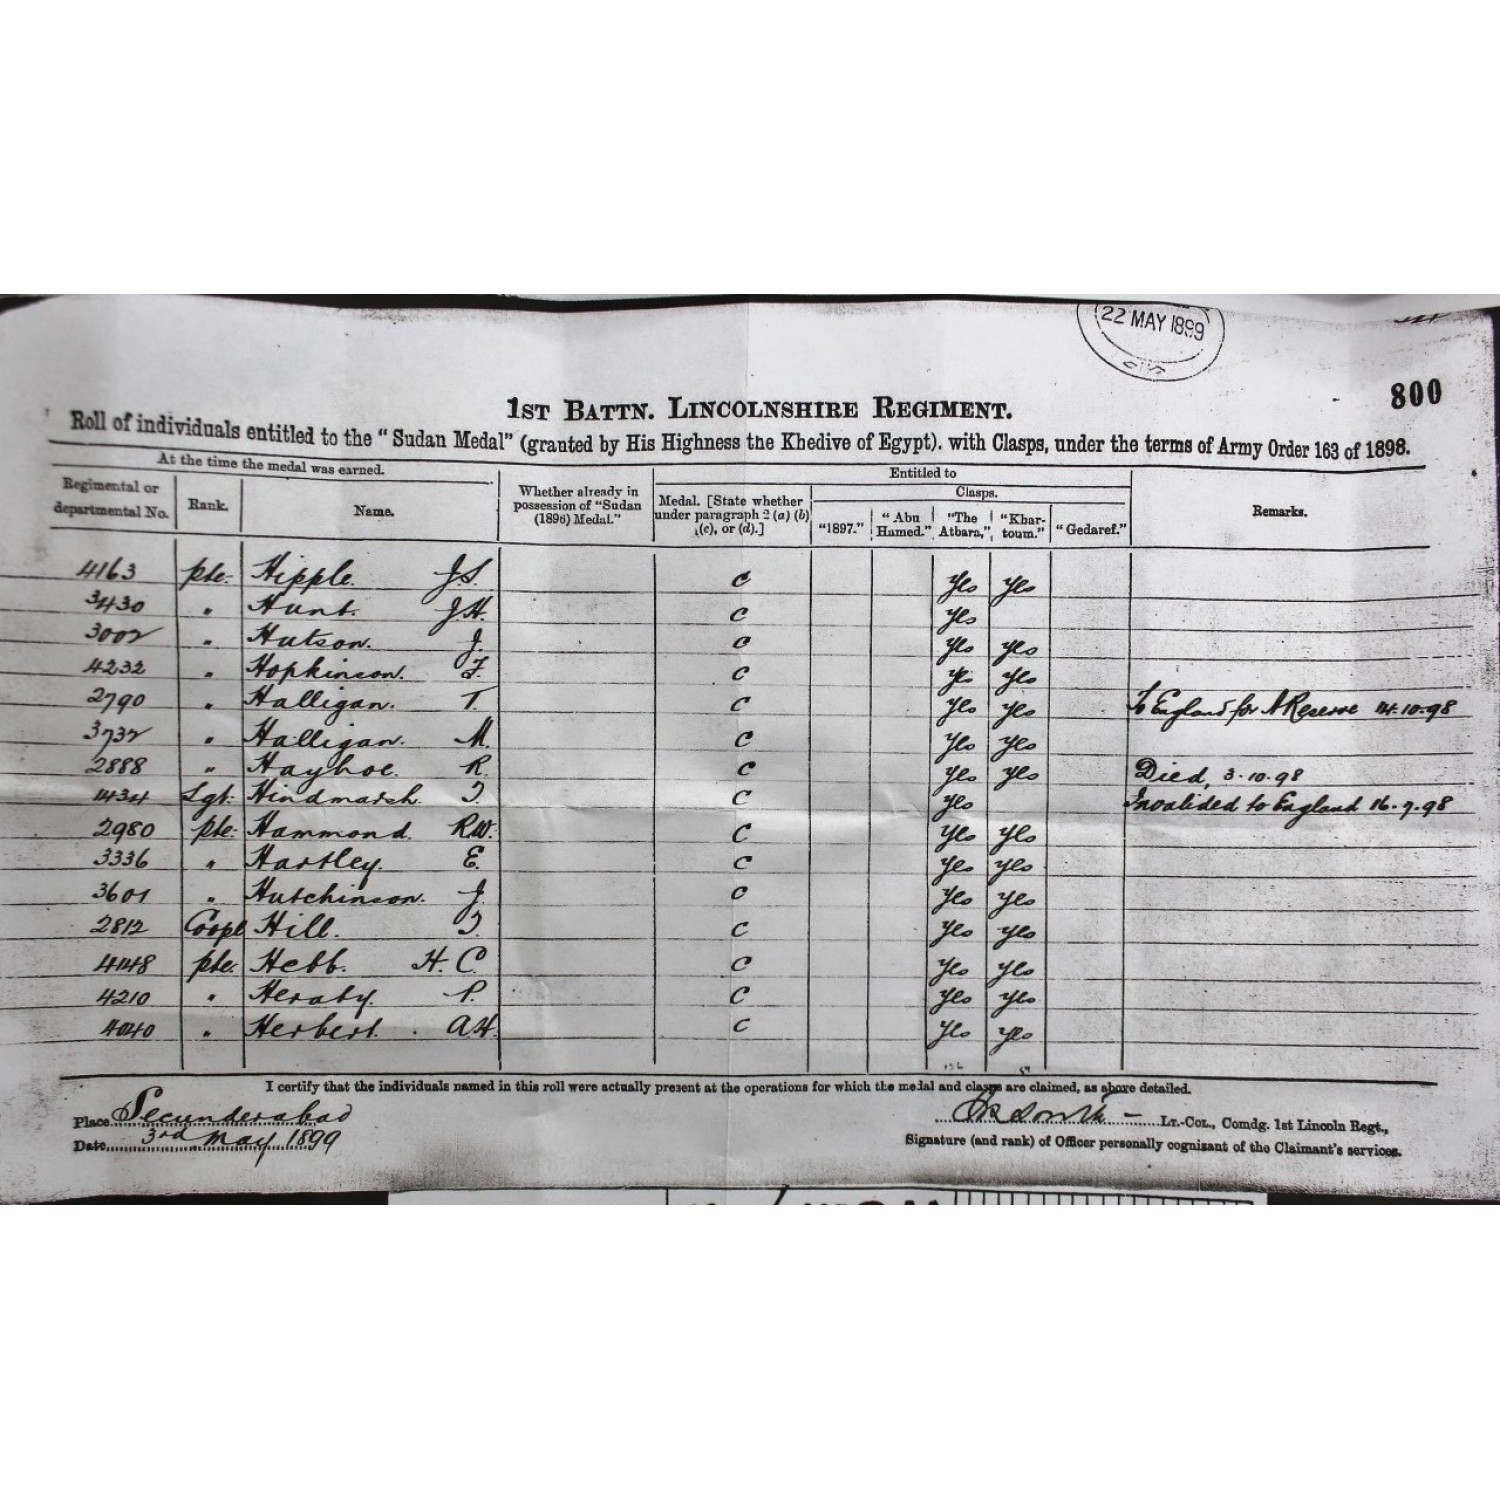 22 MAY 1899
800
1ST BATTN. LINCOLNSHIRE REGIMENT.
Roll of individuals entitled to the "Sudan Medal" (granted by His Highness the Khedive of Egypt). with Clasps, under the terms of Army Order 163 of 1898.
At the time the medal was earned.
Entitled to
Regimental or departmental No.
Rank.
Name.
Whether already in possession of "Sudan (1896) Medal."
Medal. [State whether under paragraph 2 (a) (b) (c), or (d).]
Clasps.
"1897."
"Abu Hamed."
"The Atbara,"
"Khartoum."
"Gedaref."
Remarks.
4163 pte. Hipple. J.S. C Yes Yes
3430 " Hunt. J.H. C Yes
3002 " Hutson. J. C Yes Yes
4232 " Hopkinson. F. C Yes Yes
2790 " Halligan. T. C Yes Yes To England for A Reserve 14.10.98
3732 " Halligan. M. C Yes Yes
2888 " Hayhoe. R. C Yes Yes Died, 3.10.98
1434 Sgt. Hindmarsh. J. C Yes Invalided to England 16.7.98
2980 pte. Hammond. R.W. C Yes Yes
3336 " Hartley. E. C Yes Yes
3601 " Hutchinson. J. C Yes Yes
2812 Corpl Hill. J. C Yes Yes
4148 pte. Hebb. H. C. C Yes Yes
4210 " P. C Yes Yes
4040 " Herbert. A.H. C Yes Yes
I certify that the individuals named in this roll were actually present at the operations for which the medal and clasps are claimed, as above detailed.
Place Secunderabad
Lt.-Col., Comdg. 1st Lincoln Regt.,
Date 3rd May 1899
Signature (and rank) of Officer personally cognisant of the Claimant's services.